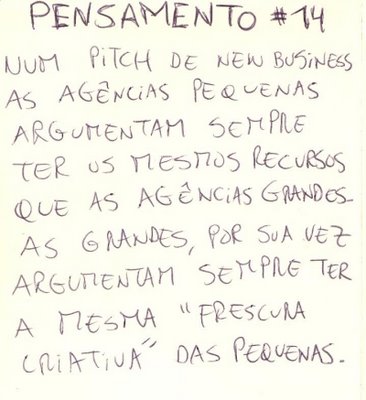 PENSAMENTO #14
NUM PITCH DE NEW BUSINESS
AS AGÊNCIAS PEQUENAS
ARGUMENTAM SEMPRE
TER OS MESMOS RECURSOS
QUE AS AGÊNCIAS GRANDES.
AS GRANDES, POR SUA VEZ
ARGUMENTAM SEMPRE TER
A MESMA "FRESCURA
CRIATIVA" DAS PEQUENAS.